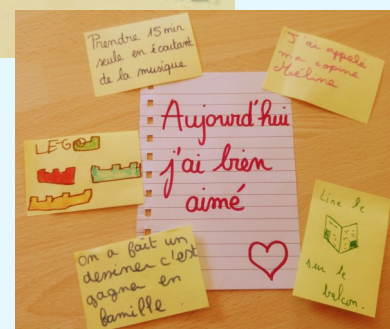 Prendre 15 min
seule en écoutant
de la musique
J'ai appelé
ma copine
Méline
LEGO
Aujourd'hui
j'ai bien
aimé
Lire le
sur le
balcon.
on a fait un
dessiner c'est
gagner en
famille.